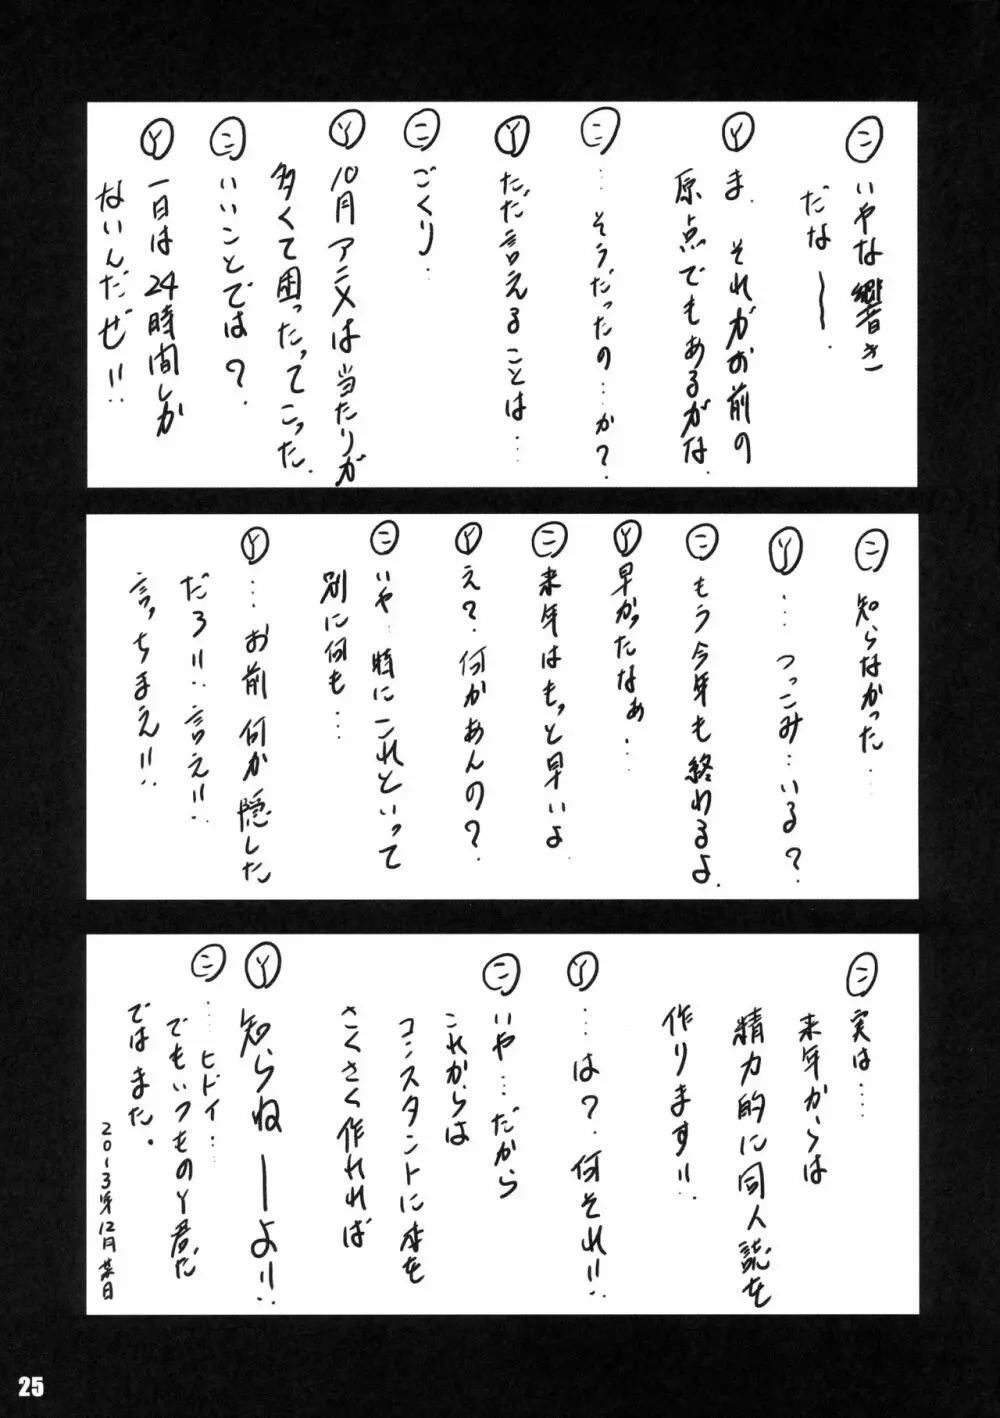 ㊁ いやな響き
だな――.
Ⓨ ま、それがお前の
原点でもあるがな.
㊁ …そうだったの…か?
Ⓨ ただ言えることは…
㊁ ごくり…
Ⓨ 10月アニメは当たりが
多くて困ったってこった.
㊁ いいことでは?
Ⓨ 一日は24時間しか
ないんだぜ!!
㊁ 知らなかった…
Ⓨ …つっこみ…いる?
㊁ もう今年も終わるよ.
Ⓨ 早かったなぁ…
㊁ 来年はもっと早いよ.
Ⓨ え?何かあんの?
㊁ いや…特にこれといって
別に何も…
Ⓨ …お前何か隠した
だろ!!言え!!
言っちまえ!!
㊁ 実は…
来年からは
精力的に同人誌を
作ります!!
Ⓨ …は?何それ!!
㊁ いや…だから
これからは
コンスタントに本を
さくさく作れれば
Ⓨ 知らねーよ!!
㊁ …ヒドイ…
でもいつものY君だ
ではまた。
2013年12月某日
25